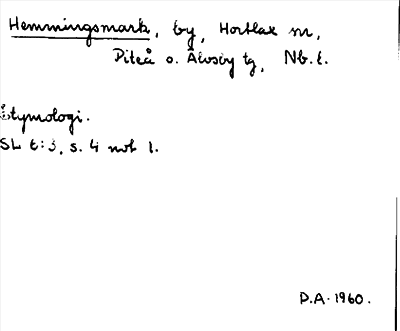 Hemmingsmark, by, Hortlax sn,
Piteå o. Älvsby tg, Nb. l.
Etymologi.
SL t:3, s. 4 not 1.
D.A. 1960.